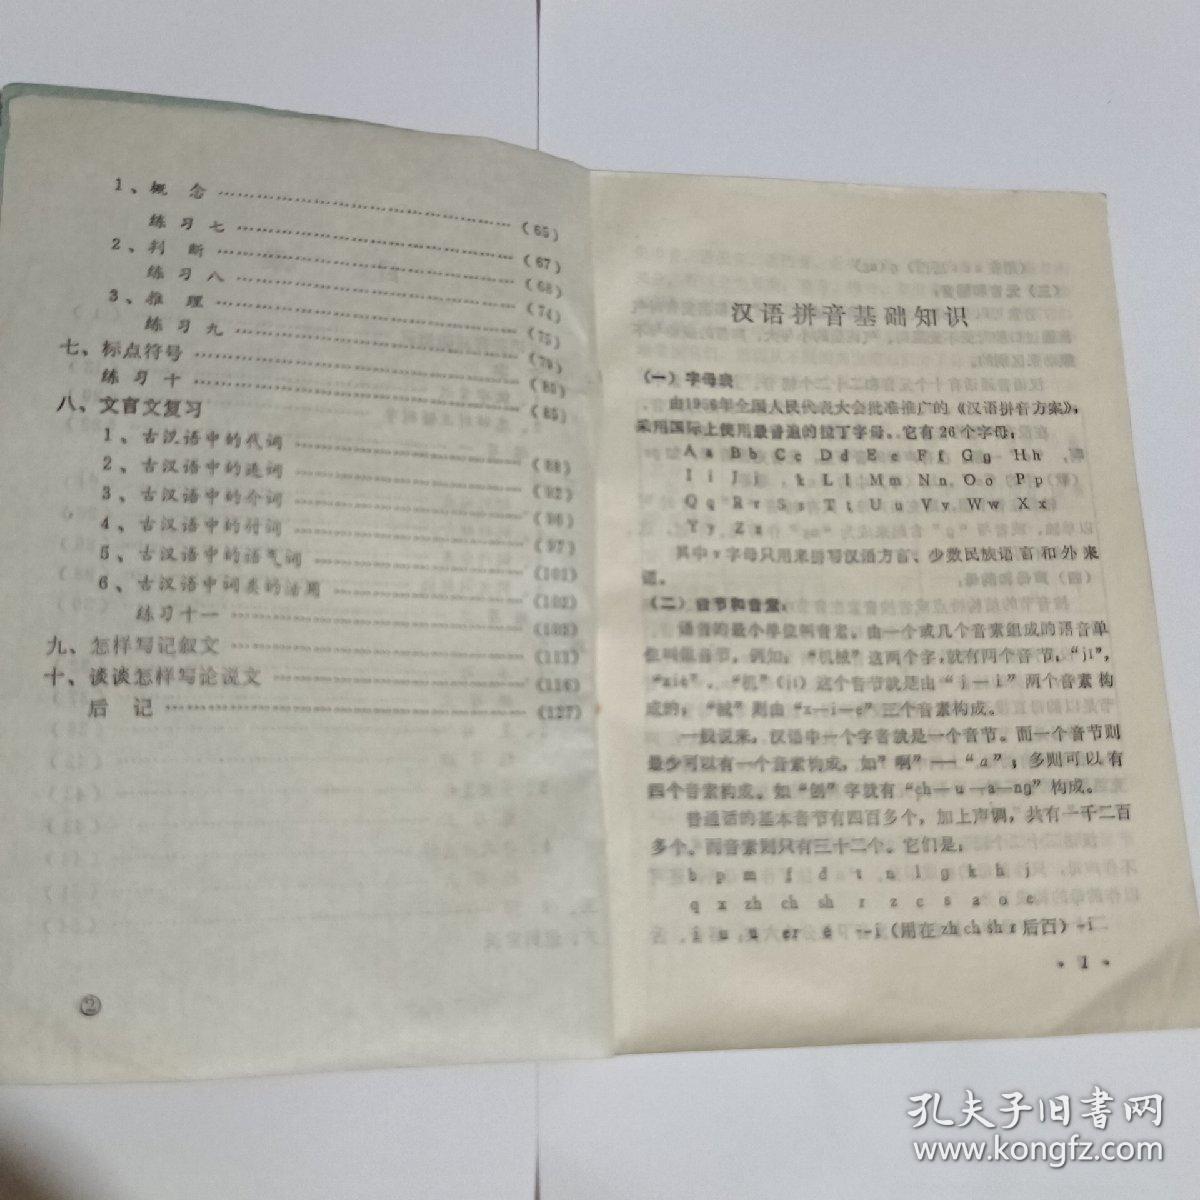 1、概 念 ……………………………………（65）
练 习 七 ……………………………………（67）
2、判 断 ……………………………………（68）
练 习 八 ……………………………………（74）
3、推 理 ……………………………………（75）
练 习 九 ……………………………………（79）
七、标点符号 ……………………………………
练 习 十 ……………………………………（85）
八、文言文复习
1、古汉语中的代词 ……………………………（88）
2、古汉语中的连词 ……………………………（92）
3、古汉语中的介词 ……………………………（96）
4、古汉语中的付词 ……………………………（97）
5、古汉语中的语气词 …………………………（101）
6、古汉语中词类的活用 ………………………（102）
练习十一 ……………………………………（105）
九、怎样写记叙文 ………………………………（111）
十、谈谈怎样写论说文 …………………………（116）
后 记 ………………………………………（127）
②
汉语拼音基础知识
（一）字母表
由1956年全国人民代表大会批准推广的《汉语拼音方案》，
采用国际上使用最普遍的拉丁字母。它有26个字母：
A a B b C c D d E e F f G g H h
I i J j k L l M m N n O o P p
Q q R r S s T t U u V v W w X x
Y y Z z
其中v字母只用来拼写汉语方言、少数民族语言和外来
语。
（二）音节和音素：
语音的最小单位叫音素。由一个或几个音素组成的语音单
位叫做音节。例如：“机械”这两个字，就有两个音节，“jī”，
“xiè”。“机”（jī）这个音节就是由“j—i”两个音素构
成的；“械”则由“x—i—e”三个音素构成。
一般说来，汉语中一个字音就是一个音节。而一个音节则
最少可以有一个音素构成，如“啊”—“a”；多则可以有
四个音素构成。如“创”字就有“ch—u—a—ng”构成。
普通话的基本音节有四百多个，加上声调，共有一千二百
多个。而音素则只有三十二个。它们是：
b p m f d t n l g k h j
q x zh ch sh r z c s a o e
i u ü er ê -i（用在zh ch sh r后面）-i
• 1 •
孔夫子旧书网
www.kongfz.com